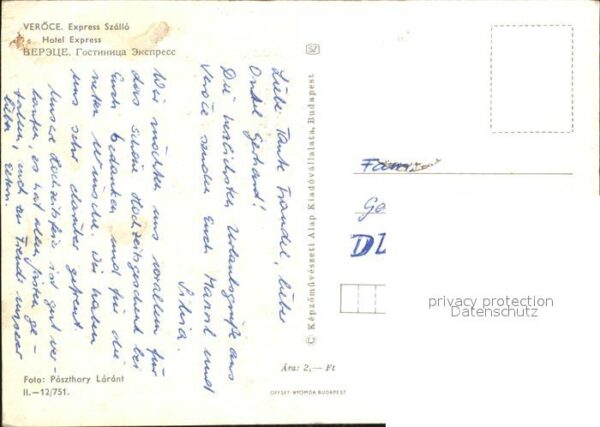 VERŐCE. Express Szálló
Hotel Express
ВЕРЭЦЕ. Гостиница Экспресс
Liebe Tante Traudel, lieber
Onkel Gerhard!
Die herzlichsten Urlaubsgrüße aus
Verőce senden Euch Marcel und
Silvia.
Wir möchten uns vorallem für
das schöne Hochzeitsgeschenk bei
Euch bedanken und für die
netten Wünsche. Wir haben
uns sehr darüber gefreut.
Unsere Hochzeitsfeier ist gut ver-
laufen, es hat allen Gästen ge-
fallen, und zur Freude unserer
lieben Eltern.
Foto: Pászthory Lóránt
II.—12/751.
© Képzőművészeti Alap Kiadóvállalata, Budapest
Fam
Ge
Ára: 2,— Ft
OFFSET-NYOMDA BUDAPEST
privacy protection
Datenschutz